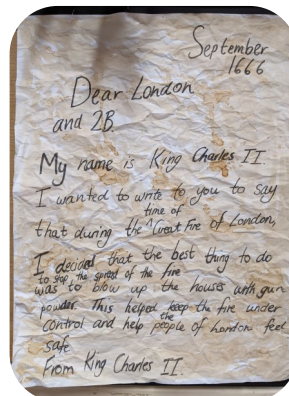 September
1666
Dear London
and 2B.
My name is King Charles II.
I wanted to write to you to say
time of
that during the ^ Great Fire of London,
I decided that the best thing to do
to stop the spread of the fire
was to blow up the houses with gun
powder. This helped keep the fire under
the
control and help people of London feel
safe
From King Charles II.